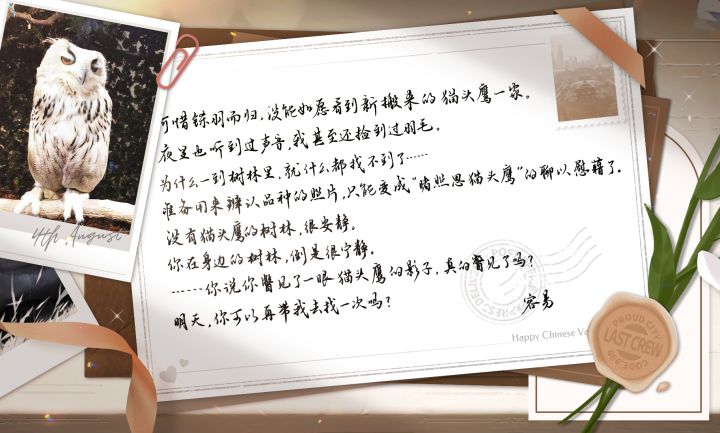 可惜铩羽而归，没能如愿看到新搬来的猫头鹰一家。
夜里也听到过声音，我甚至还捡到过羽毛。
为什么一到树林里，就什么都找不到了……
准备用来辨认品种的照片，只能变成“睹照思猫头鹰”的聊以慰藉了。
没有猫头鹰的树林，很安静。
你在身边的树林，倒是很宁静。
……你说你瞥见了一眼猫头鹰的影子，真的瞥见了吗？
明天，你可以再带我去找一次吗？
容易
4th August
Happy Chinese
PROUD CITY
LAST CREW